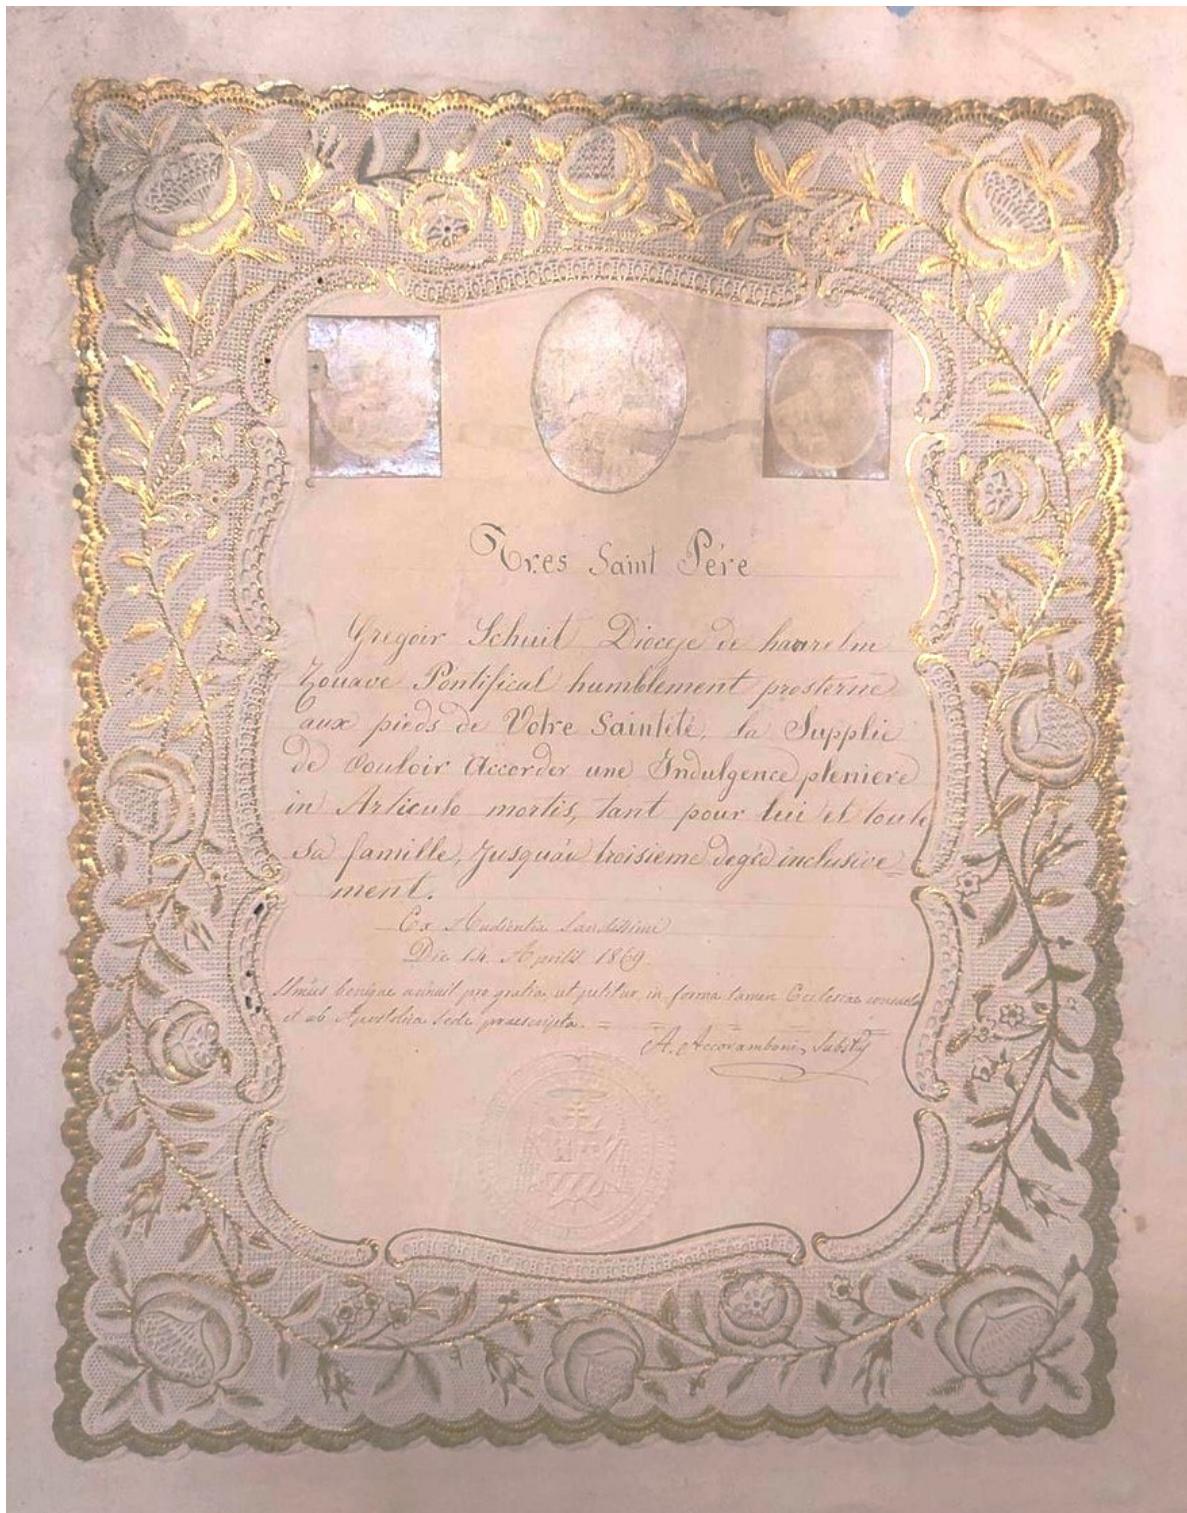 Tres Saint Pére
Gregoir Schuit Diocese de haarelm
Zouave Pontifical humblement prosterne
aux pieds de Votre Sainteté, la Supplie
de Vouloir Accorder une Indulgence pleniere
in Articulo mortis, tant pour lui et toute
sa famille, jusqu'au troisieme degré inclusive=
ment.
Ex Audientia Sanctissimi
Die 14 Aprilis 1869.
benigne annuit pro gratia ut petitur in forma tamen Ecclesiae consueta
et ab Apostolica Sede praescripta. =
A. Accoramboni,